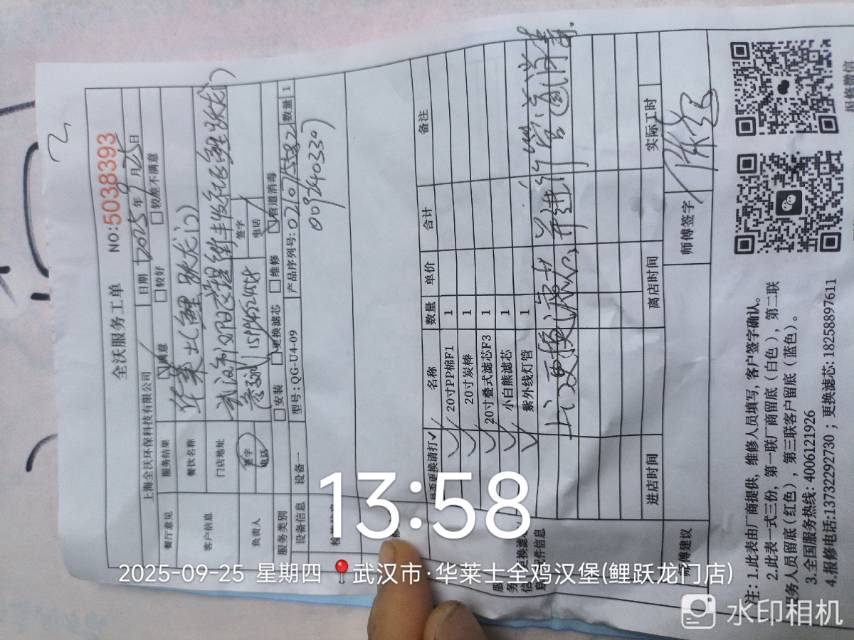 全沃服务工单
NO:5038393
上海全沃环保科技有限公司
日期
2025年9月25日
餐厅意见
服务结果
满意
较好
较差不满意
客户信息
餐饮名称
华莱士(鲤跃龙门)
门店地址
负责人
签字
电话
签字
电话
服务类别
安装
更换滤芯
维修
管道消毒
设备信息
设备一
型号:QG-U4-09
产品序列号:
数量 1
0092403307
是否更换请打✓
名称
数量
单价
合计
备注
✓ 20寸PP棉F1 1
✓ 20寸炭棒 1
✓ 20寸叠式滤芯F3 1
✓ 小白熊滤芯 1
✓ 紫外线灯管 1
以上更换滤芯并进行管道消毒.
进店时间
离店时间
实际工时
师傅建议
师傅签字
注: 1.此表由厂商提供, 维修人员填写, 客户签字确认。
2.此表一式三份, 第一联厂商留底(白色), 第二联
服务人员留底(红色), 第三联客户留底(蓝色)。
3.全国服务热线: 4006121926
4.报修电话:13732292730 ; 更换滤芯: 18258897611
报修微信
13:58
2025-09-25 星期四 武汉市·华莱士全鸡汉堡(鲤跃龙门店)
水印相机